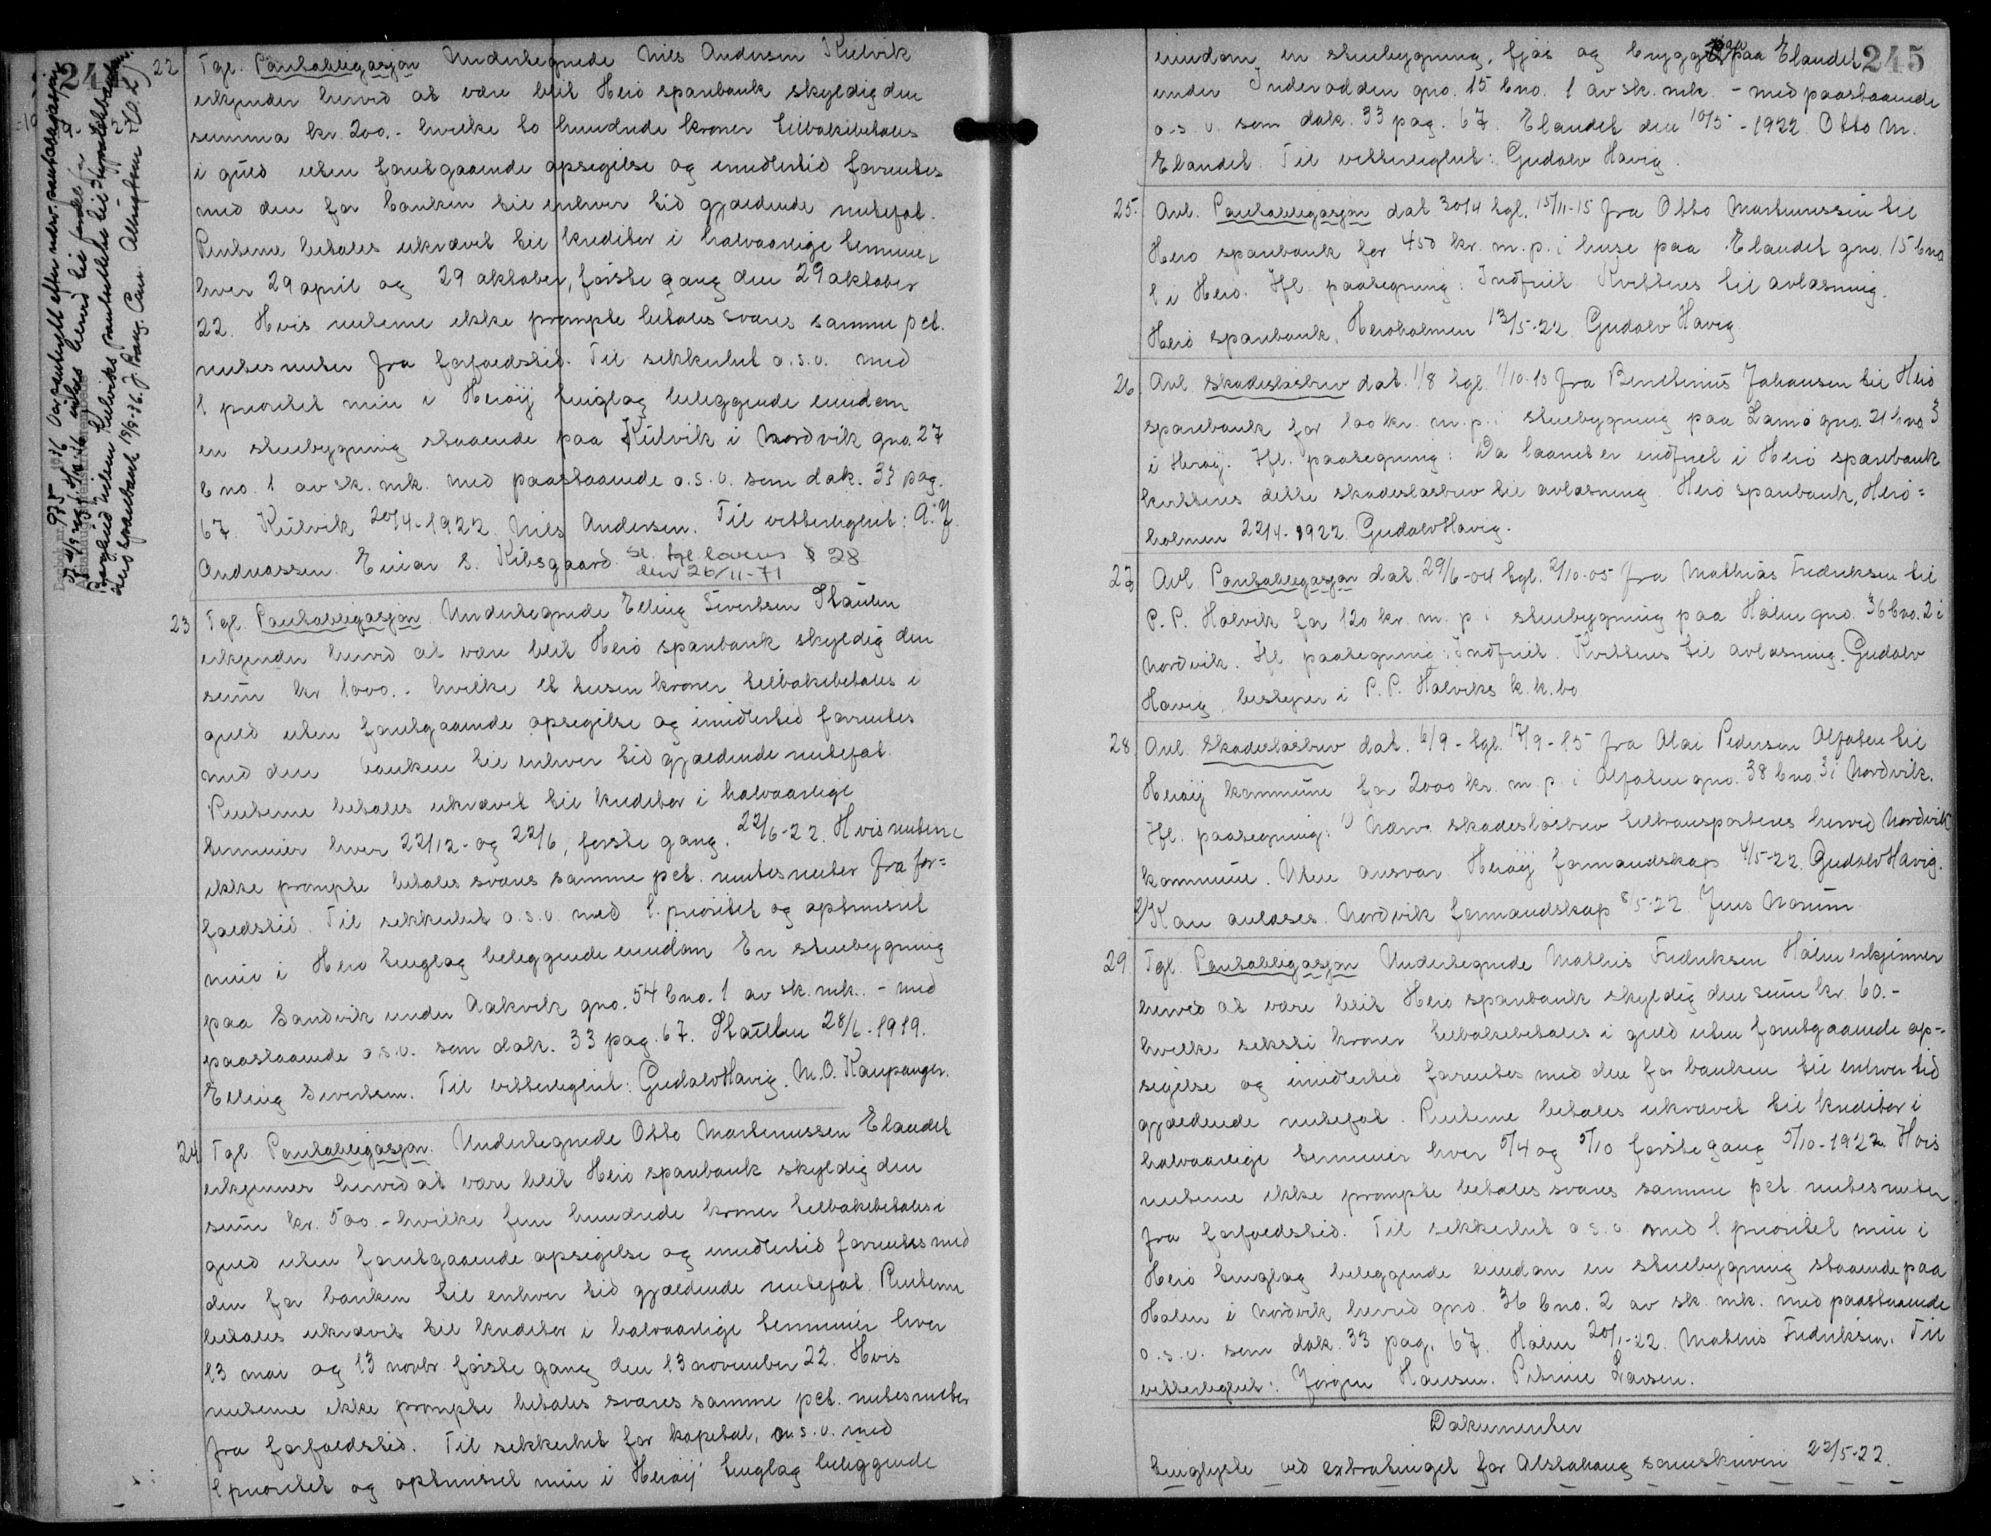 22 Tgl. Pantobligasjon Undertegnede Nils Andersen Kulvik
erkjender herved at være blit Herö sparebank skyldig den
summa kr. 200.- hvilke to hundrede kroner tilbakebetales
i guld uten forutgaaende opsigelse og imidlertid forrentes
med den for banken til enhver tid gjældende rentefot.
Renterne betales ukrævet til kreditor i halvaarlige terminer
hver 29 april og 29 oktober, første gang den 29 oktober
22. Hvis renterne ikke prompte betales svares samme pct.
rentesrenter fra forfaldstid. Til sikkerhet o.s.v. med
1 prioritet min i Herøij tinglag beliggende eiendom
en stuebygning staaende paa Kulvik i Nordvik gno. 27
bno. 1 av sk. mk. med paastaaende o.s.v. som dok. 33 pag.
67. Kulvik 20/4-1922. Nils Andersen. Til vitterlighet: A. J.
Andreassen. Einar S. Kibsgaard. Sl. tgl. lovens § 28
den 26/11-71
23 Tgl. Pantobligasjon. Undertegnede Elling Sivertsen Staulen
erkjender herved at være blit Herö sparebank skyldig den
sum kr 1000.- hvilke et tusen kroner tilbakebetales i
guld uten forutgaaende opsigelse og imidlertid forrentes
med den banken til enhver tid gjældende rentefot.
Renterne betales ukrævet til kreditor i halvaarlige
terminer hver 22/12- og 22/6, første gang. 22/6-22. Hvis renterne
ikke prompte betales svares samme pct. rentesrenter fra for=
faldstid. Til sikkerhet o.s.v. med 1. prioritet og optrinsret
min i Herø tinglag beleggende eiendom En stuebygning
paa Sandvik under Aakvik gno. 54 bno. 1 av sk. mk. - med
paastaaende o.s.v. som dok. 33 pag. 67. Staulen 28/6-1919.
Elling Sivertsen. Til vitterlighet: Gudolv Havig. M.O. Kaupanger.
24 Tgl. Pantobligasjon. Undertegnede Otto Martinussen Elandet
erkjenner herved at være blit Herö sparebank skyldig den
sum kr. 500.- hvilke fem hundrede kroner tilbakebetales i
guld uten forutgaaende opsigelse og imidlertid forrentes med
den for banken til enhver tid gjældende rentefot. Renterne
betales ukrævet til kreditor i halvaarlige terminer hver
13 mai og 13 novbr. første gang den 13 november 22. Hvis
renterne ikke prompte betales svares samme pct. rentesrenter
fra forfaldstid. Til sikkerhet for kapital, o.s.v. med
1 prioritet og optrinsret min i Herøij tinglag beliggende
245
eiendom en stuebygning, fjøs og brygge paa Elandet
under Inderodden gno. 15 bno. 1 av sk. mk. - med paastaaende
o.s.v. som dok. 33 pag. 67. Elandet den 10/5-1922. Otto M.
Elandet. Til vitterlighet: Gudolv Havig.
25. Avl. Pantobligasjon dat 30/4 tgl. 15/11-15 fra Otto Martinussen til
Herø sparebank for 450 kr. m.p. i huse paa Elandet gno. 15 bno
1 i Herø. Ifl. paategning: Indfriet. Kvitteres til avlæsning.
Herø sparebank, Herøholmen 13/5-22. Gudolv Havig
26 Avl. Skadesløsbrev dat. 1/8 tgl. 1/10-10 fra Benthinus Johansen til Herø
sparebank for 100 kr. m.p. i stuebygning paa Lamø gno. 21 bno 3
i Herøij. Ifl. paategning: Da laanet er indfriet i Herø sparebank
kvitteres dette skadesløsbrev til avlæsning. Herø sparebank, Herø=
holmen 22/4-1922. Gudolv Havig.
27 Avl. Pantobligasjon dat. 29/6-04 tgl. 2/10-05 fra Mathias Fredriksen til
P. P. Halvik for 120 kr. m. p. i stuebygning paa Halen gno. 36 bno. 2 i
Nordvik. Ifl. paategning: Indfriet. Kvitteres til avlæsning. Gudolv
Havig, bestyrer i P. P. Halviks k.k.bo
28 Avl. Skadesløsbrev dat. 6/9- tgl. 17/9-15 fra Olai Pedersen Alfoten til
Herøij kommune for 2000 kr. m.p. i Alfoten gno. 38 bno. 3 i Nordvik.
Ifl. paategning: 1) Nærv. skadesløsbrev tiltransporteres herved Nordvik
kommune. Uten ansvar Herøij formandskap 4/5-22. Gudolv Havig.
2) Kan avlæses. Nordvik formandskap 8/5-22 Jens Norum
29. Tgl. Pantobligasjon Undertegnede Mathis Fredriksen Halen erkjenner
herved at være blit Herø sparebank skyldig den sum kr. 60.-
hvilke seksti kroner tilbakebetales i guld uten forutgaaende op-
sigelse og imidlertid forrentes med den for banken til enhver tid
gjældende rentefot. Renterne betales ukrævet til kreditor i
halvaarlige terminer hver 5/4 og 5/10 første gang 5/10-1922. Hvis
renterne ikke prompte betales svares samme pct. rentesrenter
fra forfaldstid. Til sikkerhet o.s.v. med 1 prioritet min i
Herø tinglag beleggende eiendom en stuebygning staaende paa
Halen i Nordvik herred gno. 36 bno. 2 av sk. mk. med paastaaende
o.s.v. som dok. 33 pag. 67. Halen 20/1-22. Mathis Fredriksen. Til
vitterlighet: Jørgen Hansen. Petrine Larsen.
Dokumenter
tinglyste ved extratinget for Alstahaug sorenskriveri 22/5-22.